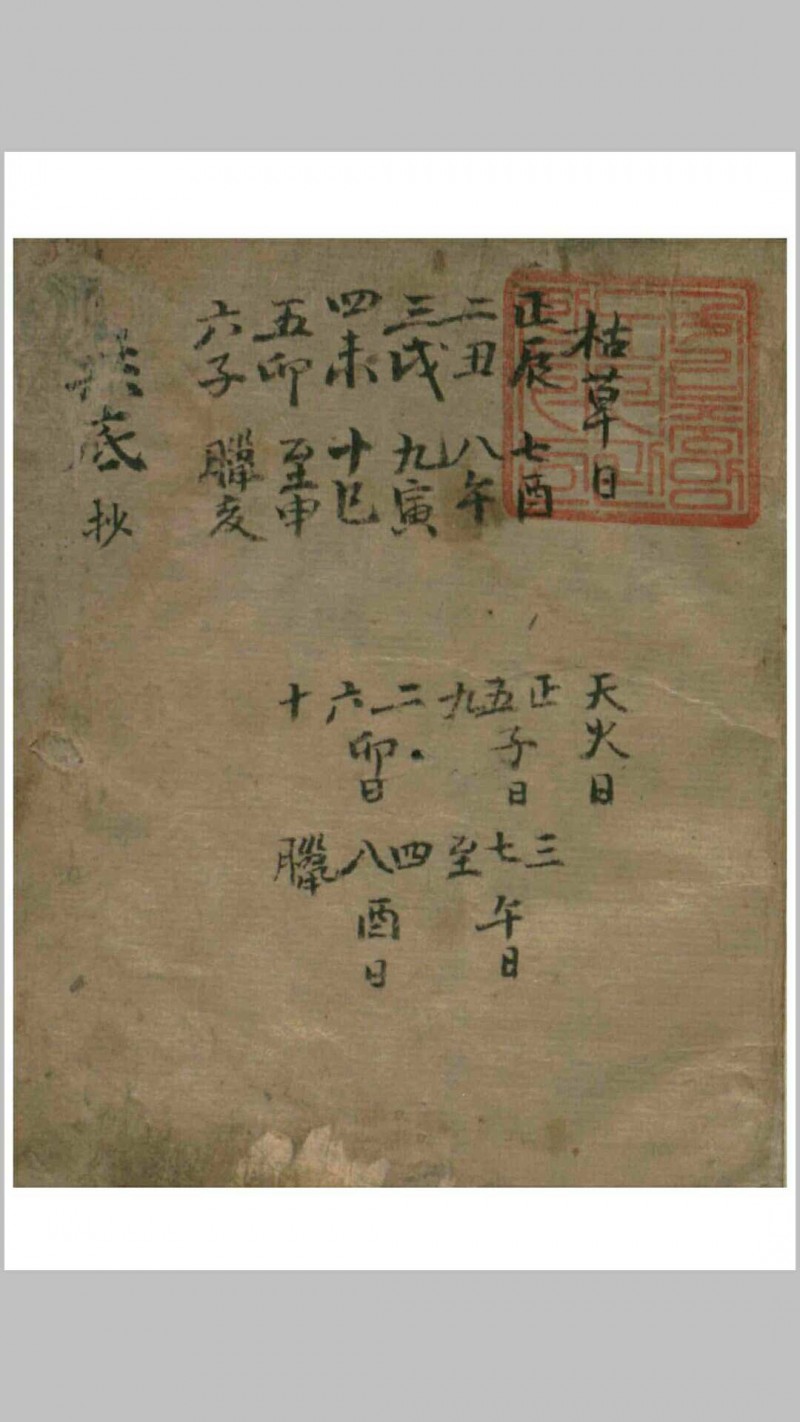 枯草日
正辰 七酉
二丑 八午
三戌 九寅
四未 十巳
五卯 至申
六子 臘亥
天火日
正五九
子日
二六十
卯日
三七至
午日
四八臘
酉日
底抄